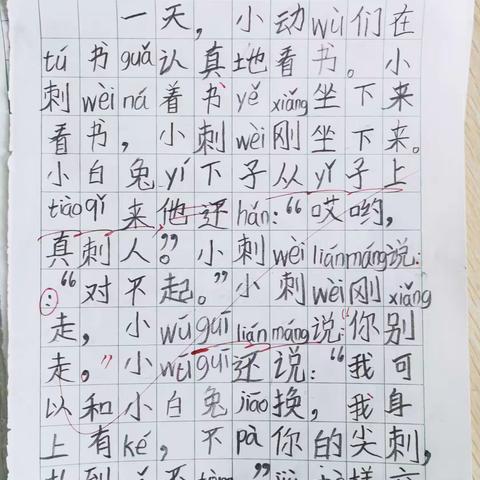 一天，小动wù们在
tú书guǎ认真地看书。小
刺wèi ná着书yě xiǎng坐下来
看书，小刺wèi刚坐下来。
小白兔yí下子从yǐ子上
tiào qǐ来，他还hán：“哎哟，
真刺人。”小刺wèi lián máng说：
：“对不起。”小刺wèi刚xiǎng
走，小wū guī lián máng说：“你别
走。”小wū guī还说：“我可
以和小白兔jiāo换，我身
上有ké，不pà你的尖刺，